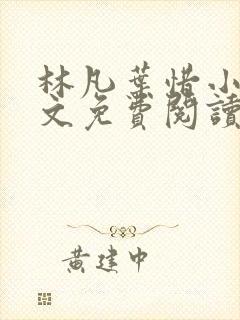 林凡葉惜小
文免費閱讀
黃建中